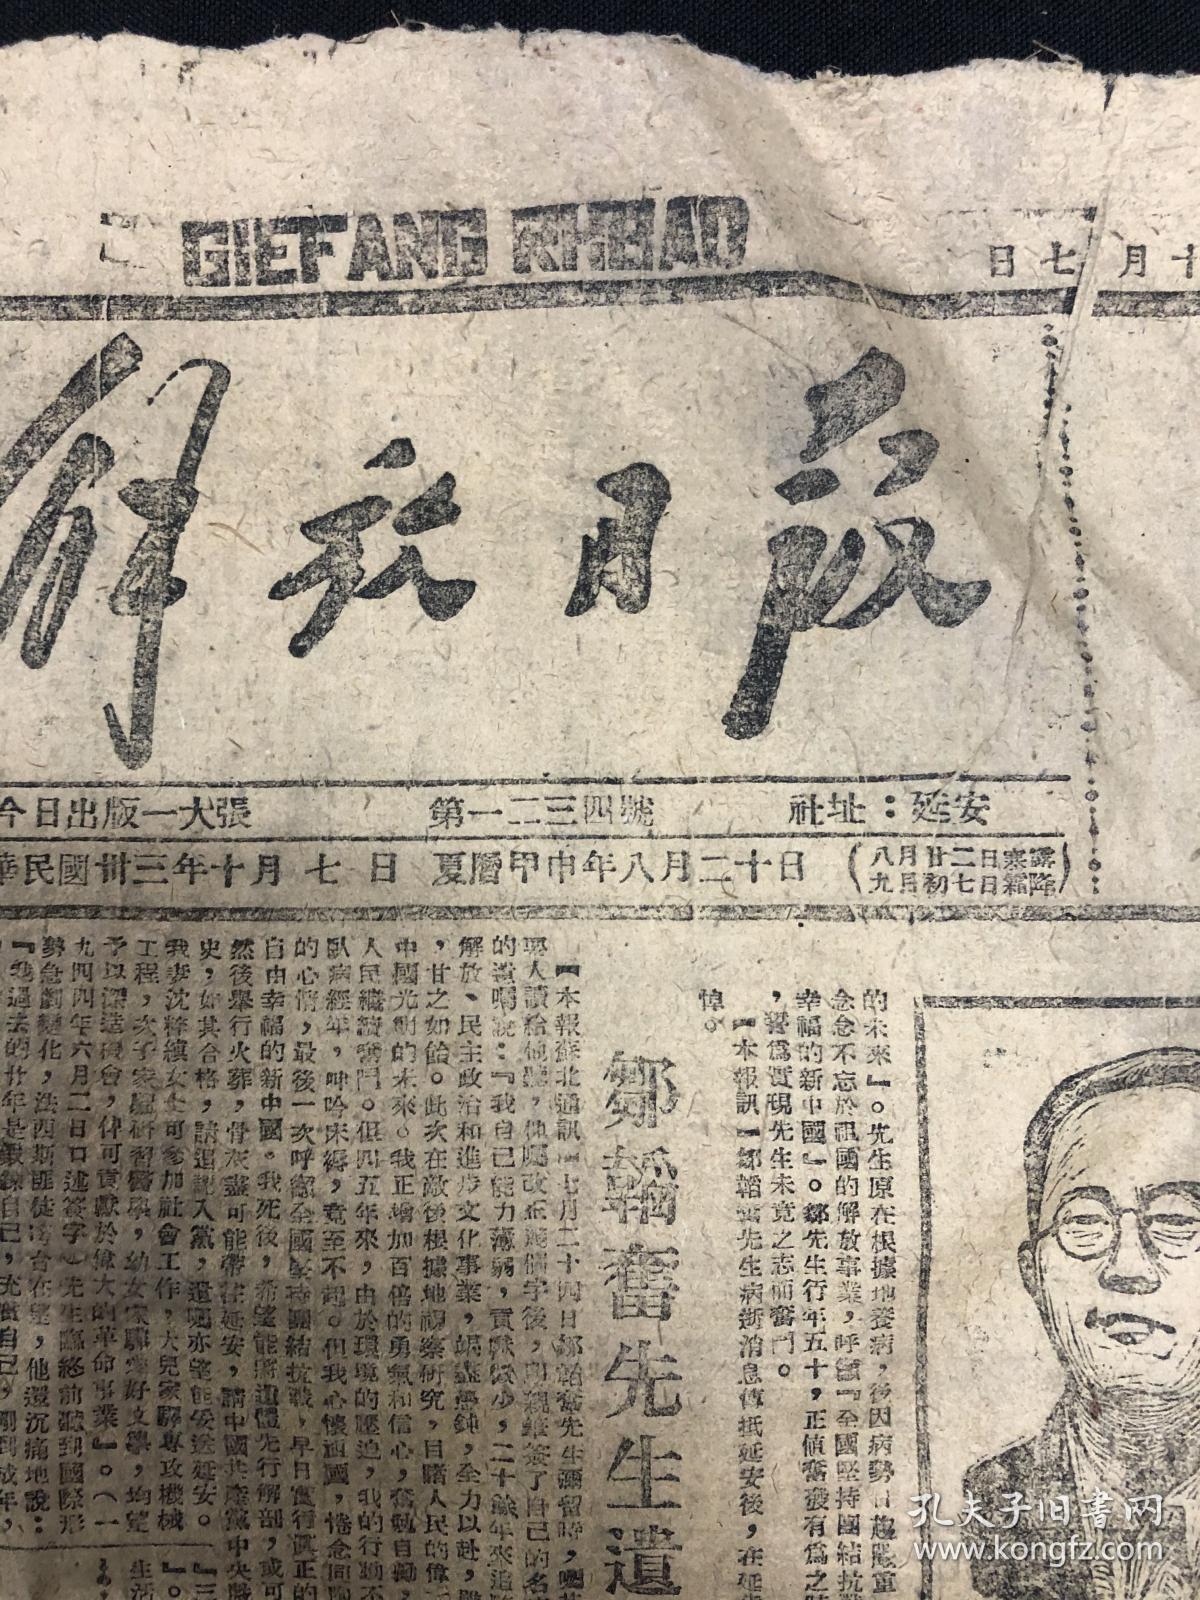 GIEFANG RHBAO
日七月十
解放日報
今日出版一大張
第一二三四號
社址：延安
華民國卅三年十月七日
夏曆甲申年八月二十日
（八月廿二日寒露
九月初七日霜降）
的未來』。先生原在根據地養病，後因病勢日趨嚴重
念念不忘於祖國的解放事業，呼籲『全國堅持團結抗戰
幸福的新中國』。鄒先生行年五十，正值奮發有爲之時
，誓爲實現先生未竟之志而奮鬥。
【本報訊】鄒韜奮先生病逝消息傳抵延安後，在延
悼。
鄒韜奮先生遺
【本報蘇北通訊】七月二十四日鄒韜奮先生彌留時，囑其
的遺囑說：『我自己能力薄弱，貢獻微少，二十餘年來追隨
解放、民主政治和進步文化事業，竭盡愚鈍，全力以赴，雖
，甘之如飴。此次在敵後根據地視察研究，目睹人民的偉
中國光明的未來。我正增加百倍的勇氣和信心，奮勉自勵，
人民繼續奮鬥。但四五年來，由於環境的壓迫，我的行動不
臥病經年，呻吟床褥，竟至不起。但我心懷祖國，惓念同胞
的心情，最後一次呼籲全國堅持團結抗戰，早日實行眞正的
自由幸福的新中國。我死後，希望能將遺體先行解剖，或可
然後舉行火葬，骨灰盡可能帶往延安，請中國共產黨中央嚴
史，如其合格，請追認入黨，遺囑亦望能妥送延安。
我妻沈粹縝女士可參加社會工作，大兒家驊專攻機械
工程，次子家騮研習醫學，幼女家驪愛好文學，均望
予以深造機會，俾可貢獻於偉大的革命事業』。（一
九四四年六月二日口述簽字）先生臨終前聽到國際形
勢急劇變化，法西斯匪徒
『我過去的廿年是鍛鍊自己，充實自己，剛到成年，
』。
生活
孔夫子旧書网
www.kongfz.com